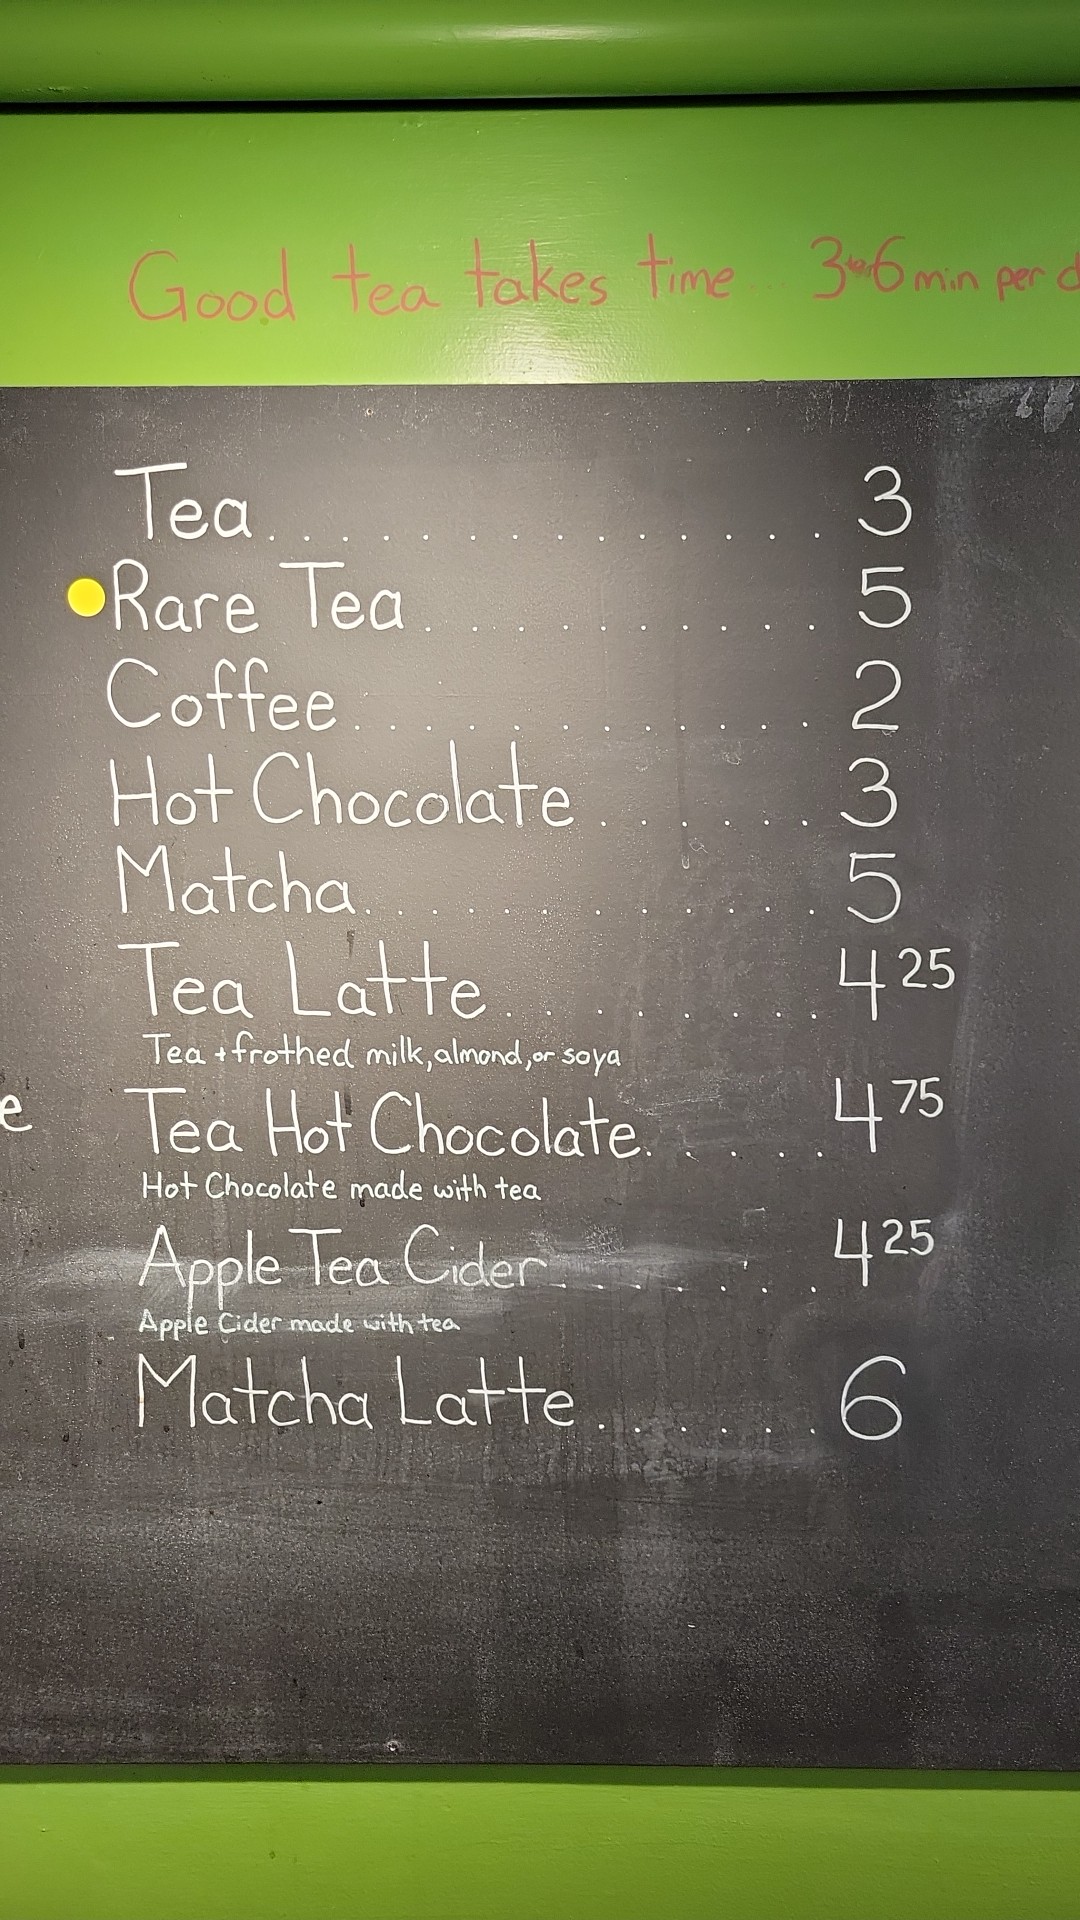 Good tea takes time... 3 to 6 min per
Tea................ 3
Rare Tea........... 5
Coffee............. 2
Hot Chocolate...... 3
Matcha............. 5
Tea Latte......... 4 25
Tea + frothed milk, almond, or soya
e
Tea Hot Chocolate...... 4 75
Hot Chocolate made with tea
Apple Tea Cider........ 4 25
Apple Cider made with tea
Matcha Latte...... 6